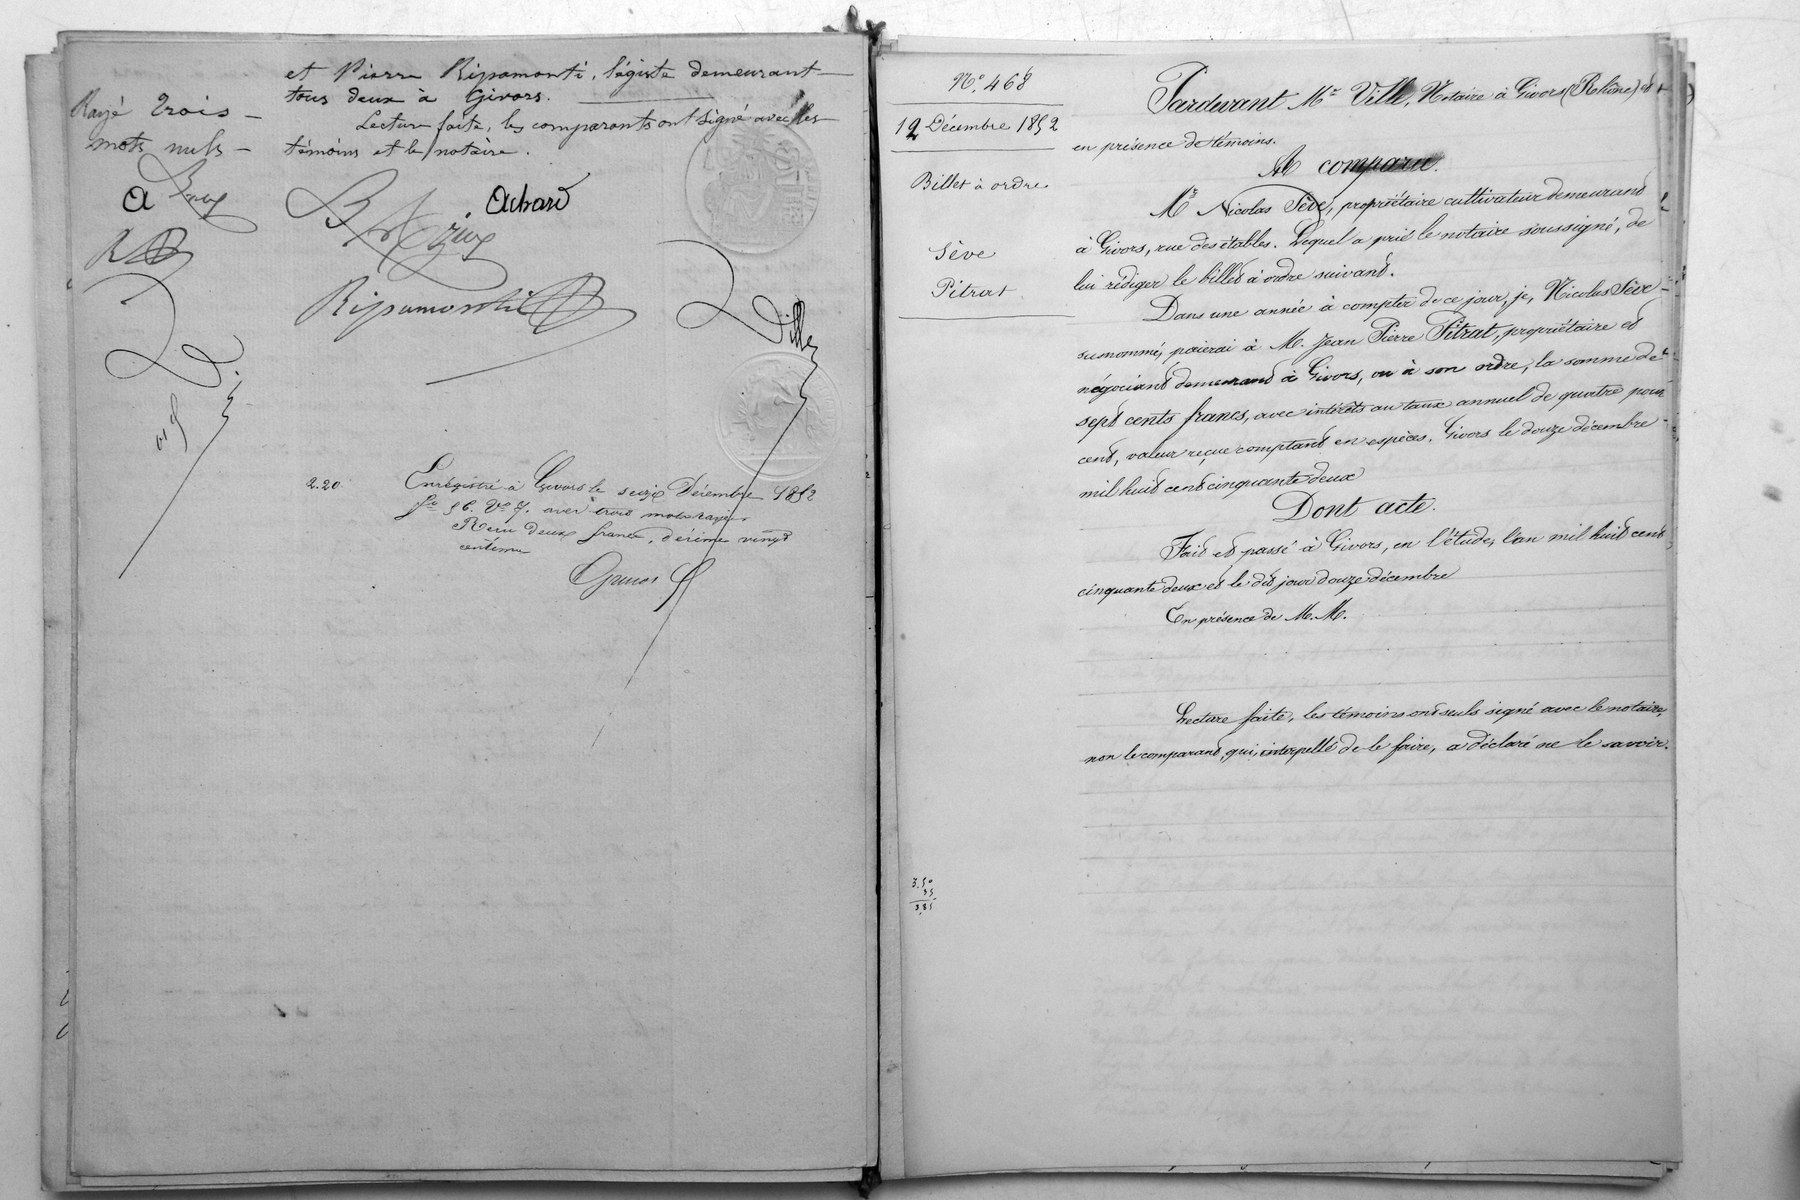 et Pierre Ripamonti, légiste demeurant
tous deux à Givors.
Lecture faite, les comparants ont signé avec les
témoins et le notaire.
Rayé trois
mots nuls
Achard
Ripamonti
Ville
2.20
Enregistré à Givors le seize Décembre 1852
fo 56. Vo 7. avec trois mots rayés
Reçu deux francs, décime vingt
centimes
No. 468
12 Décembre 1852
Billet à ordre
Sève
Pitrat
3.50
35
3.85
Pardevant Me Ville, Notaire à Givors (Rhône) et
en présence de témoins.
A comparu.
Mr Nicolas Sève, propriétaire cultivateur demeurant
à Givors, rue des étables. Lequel a prié le notaire soussigné, de
lui rédiger le billet à ordre suivant.
Dans une année à compter de ce jour, je, Nicolas Sève
susnommé, paierai à M. Jean Pierre Pitrat, propriétaire et
négociant demeurant à Givors, ou à son ordre, la somme de
sept cents francs, avec intérêts au taux annuel de quatre pour
cent, valeur reçue comptant en espèces. Givors le douze décembre
mil huit cent cinquante deux
Dont acte.
Fait et passé à Givors, en l'étude, l'an mil huit cent
cinquante deux et le dit jour douze décembre
En présence de M.M.
Lecture faite, les témoins ont seuls signé avec le notaire,
non le comparant, qui, interpellé de le faire, a déclaré ne le savoir.